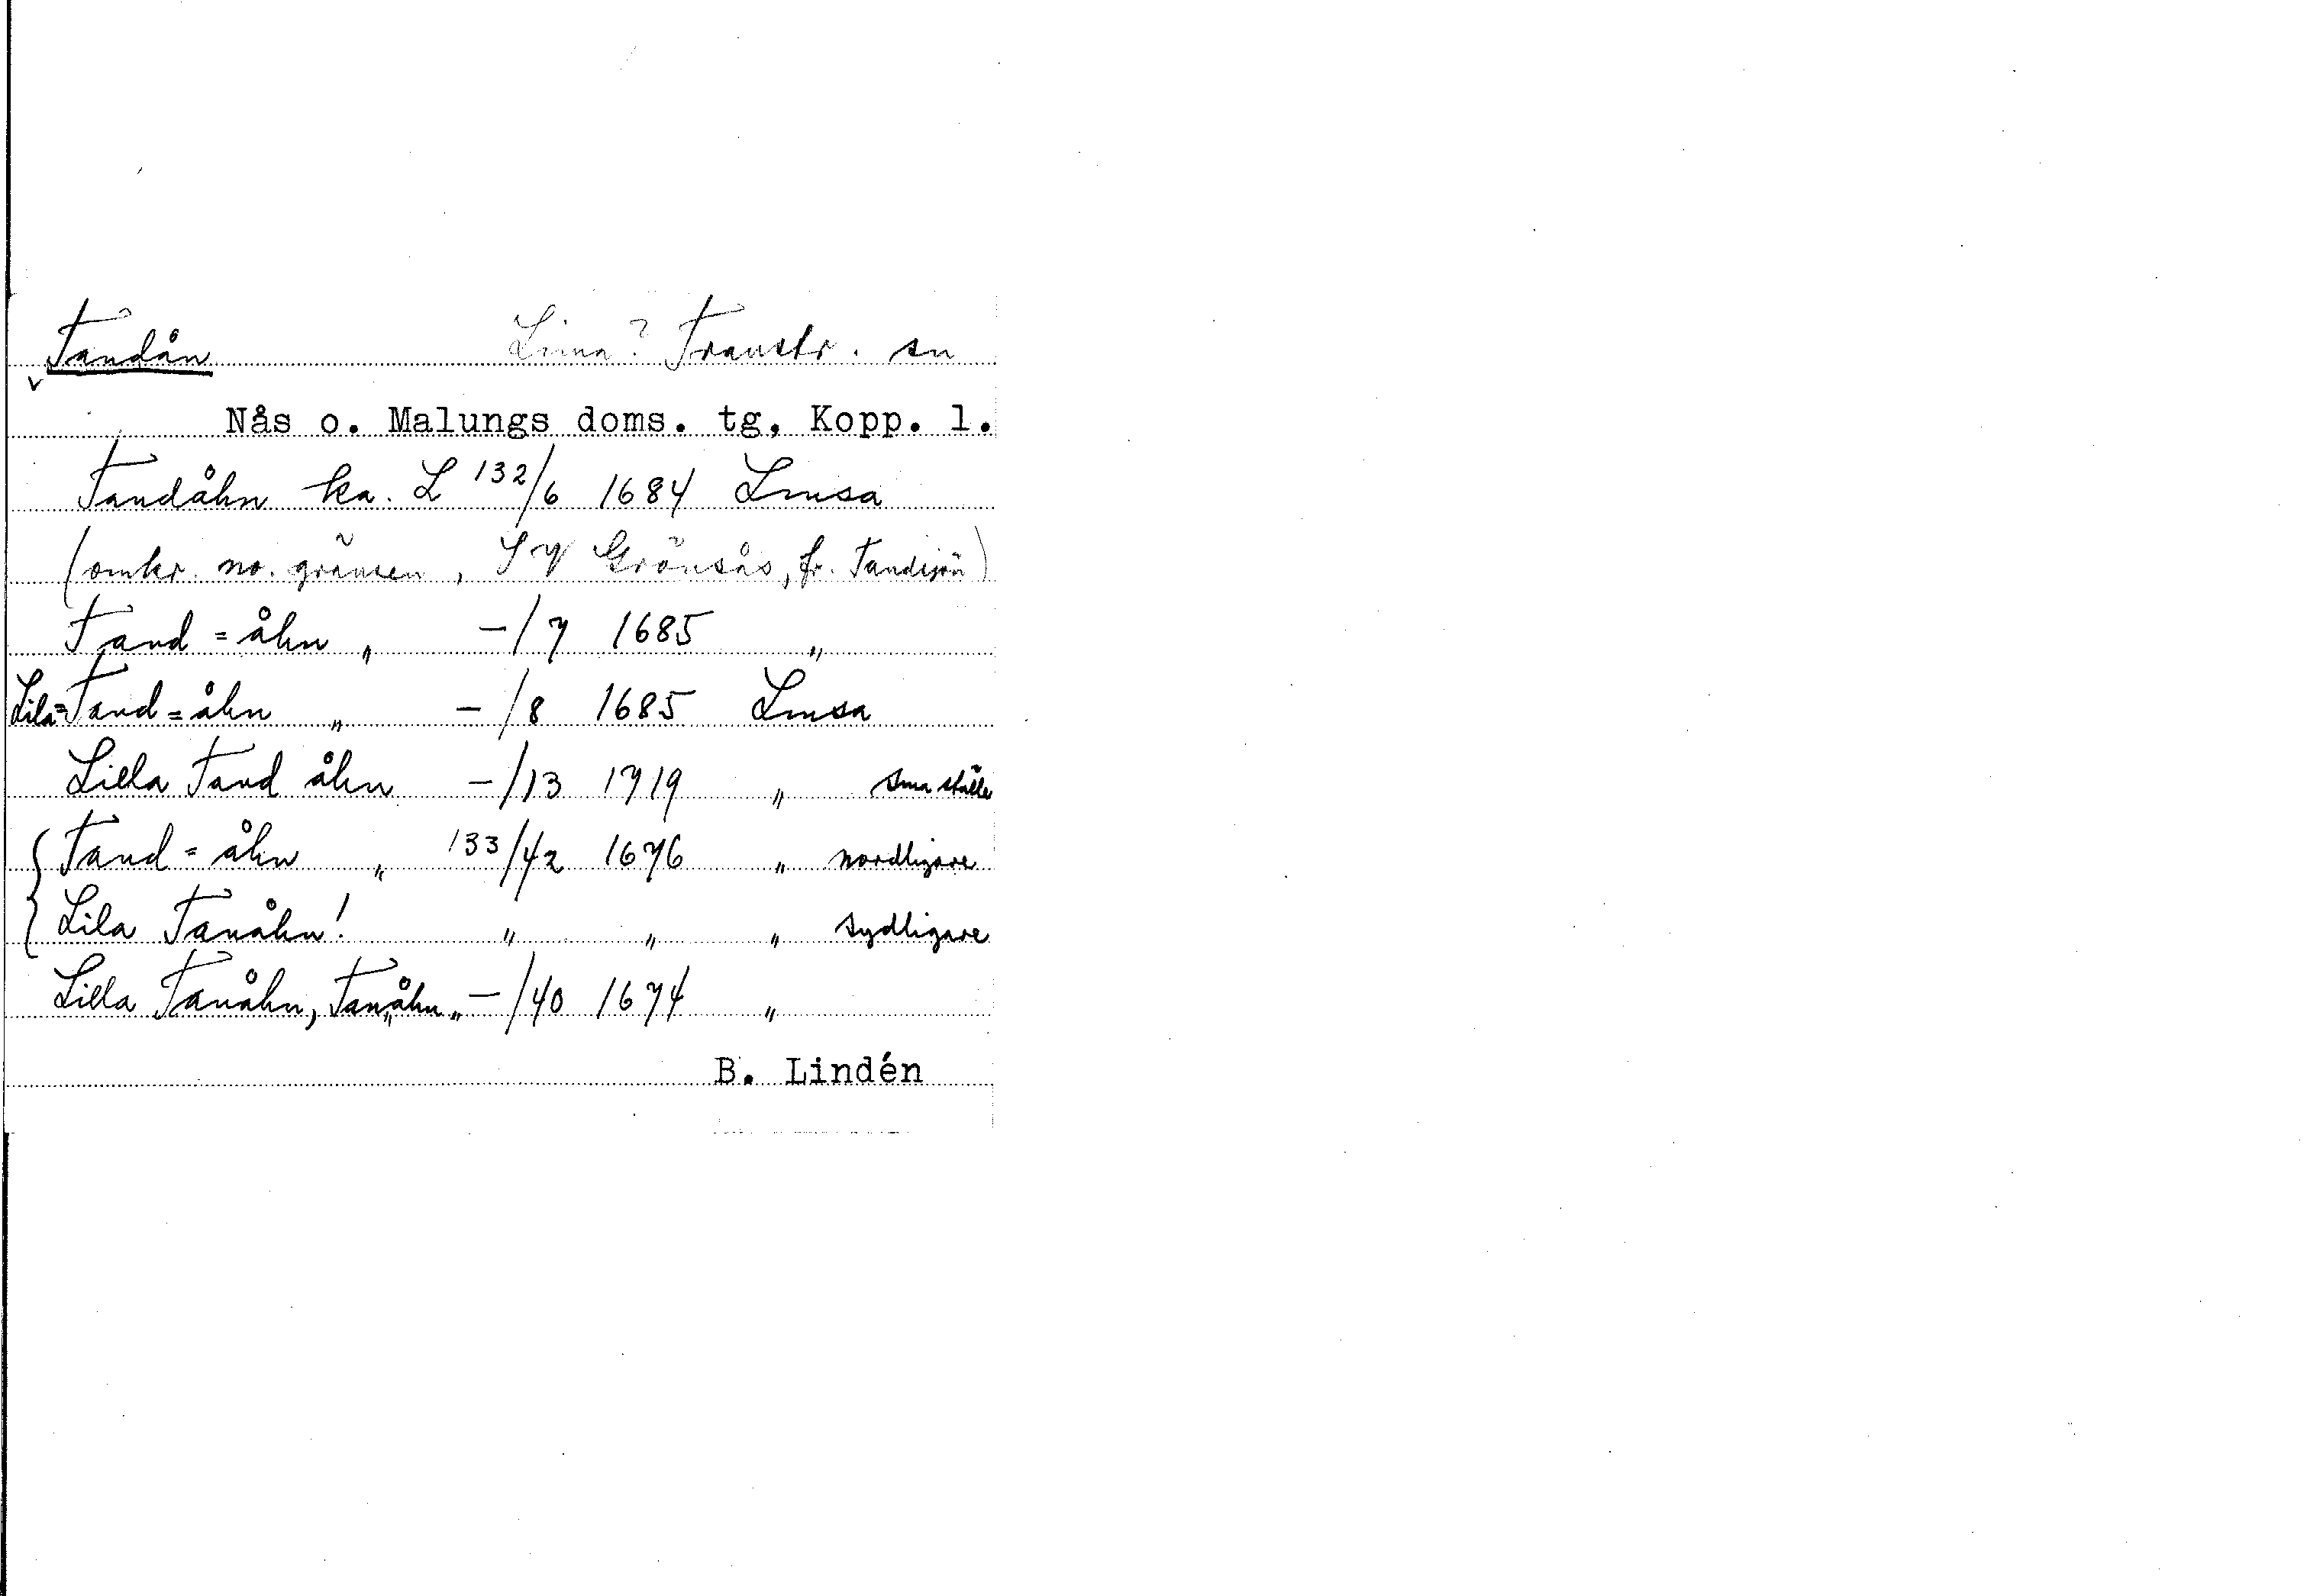 Tandån Lima? Transtr. sn
Nås o. Malungs doms. tg, Kopp. l.
Tandåhn ka. L 132/6 1684 Lmsa
(omkr. no. gränsen, SV Grönsås, fr. Tandsjön)
Tand=åhn „ -/7 1685 „
Lila=Tand=åhn „ -/8 1685 Lmsa
Lilla Tand åhn -/13 1719 „ sma ställe
{ Tand=åhn „ 133/42 1676 „ nordligare
{ Lila Tanåhn! „ „ „ sydligare
Lilla Tanåhn, Tan„åhn „ -/40 1674 „
B. Lindén